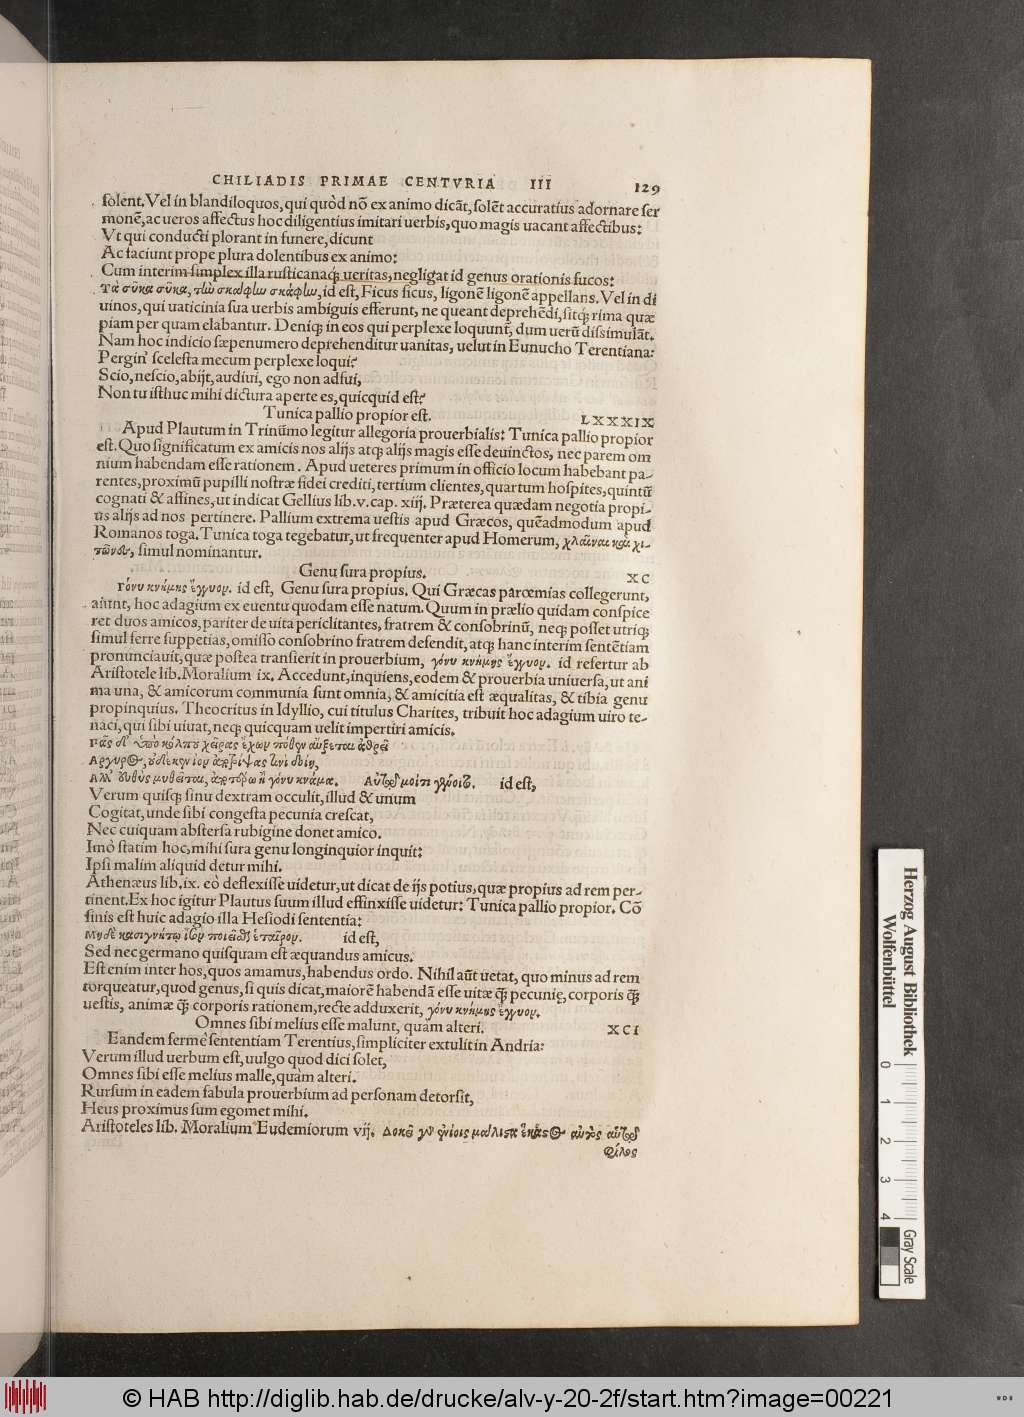 CHILIADIS PRIMAE CENTVRIA III 129
solent. Vel in blandiloquos, qui quòd nō ex animo dicāt, solēt accuratius adornare ser
monē, ac ueros affectus hoc diligentius imitari uerbis, quo magis uacant affectibus:
Vt qui conducti plorant in funere, dicunt
Ac faciunt prope plura dolentibus ex animo:
Cum interim simplex illa rusticanaq́; ueritas, negligat id genus orationis fucos:
Τὰ σῦκα σῦκα, τὼ σκάφω σκάφω, id est, Ficus ficus, ligonē ligonē appellans. Vel in di
uinos, qui uaticinia sua uerbis ambiguis efferunt, ne queant deprehēdi, sitq́; rima quæ
piam per quam elabantur. Deniq́; in eos qui perplexe loquunt᷑, dum uerū dissimulāt.
Nam hoc indicio sæpenumero deprehenditur uanitas, uelut in Eunucho Terentiana:
Pergin' scelesta mecum perplexe loqui?
Scio, nescio, abijt, audiui, ego non adfui,
Non tu isthuc mihi dictura aperte es, quicquid est?
Tunica pallio propior est. LXXXIX
Apud Plautum in Trinūmo legitur allegoria prouerbialis: Tunica pallio propior
est. Quo significatum ex amicis nos alijs atq́; alijs magis esse deuinctos, nec parem om
nium habendam esse rationem. Apud ueteres primum in officio locum habebant pa-
rentes, proximū pupilli nostræ fidei crediti, tertium clientes, quartum hospites, quintū
cognati & affines, ut indicat Gellius lib. v. cap. xiij. Præterea quædam negotia propi-
us alijs ad nos pertinere. Pallium extrema uestis apud Græcos, quēadmodum apud
Romanos toga. Tunica toga tegebatur, ut frequenter apud Homerum, χλαῖναι καὶ χι-
τῶνες, simul nominantur.
Genu sura propius. XC
Γόνυ κνήμης ἔγγυον. id est, Genu sura propius. Qui Græcas parœmias collegerunt,
aiunt, hoc adagium ex euentu quodam esse natum. Quum in prælio quidam conspice
ret duos amicos, pariter de uita periclitantes, fratrem & consobrinū, neq́; posset utriq́;
simul ferre suppetias, omisso consobrino fratrem defendit, atq́; hanc interim sentētiam
pronunciauit, quæ postea transierit in prouerbium, γόνυ κνήμης ἔγγυον. id refertur ab
Aristotele lib. Moralium ix. Accedunt, inquiens, eodem & prouerbia uniuersa, ut ani
ma una, & amicorum communia sunt omnia, & amicitia est æqualitas, & tibia genu
propinquius. Theocritus in Idyllio, cui titulus Charites, tribuit hoc adagium uiro te-
naci, qui sibi uiuat, neq́; quicquam uelit impertiri amicis.
Πᾶς δ' ὑπὸ κόλπου χεῖρας ἔχων πόθεν αὔξεται ἀθρεῖ
Ἄργυρος, οὐδέ κεν ἰὸν ἀποτρίψας τινὶ δοίη,
Ἀλλ' εὐθὺς μυθεῖται, ἀπωτέρω ἢ γόνυ κνάμα. Αὐτῷ μοί τι γένοιτο. id est,
Verum quisq́; sinu dextram occulit, illud & unum
Cogitat, unde sibi congesta pecunia crescat,
Nec cuiquam abstersa rubigine donet amico.
Imò statim hoc, mihi sura genu longinquior inquit:
Ipsi malim aliquid detur mihi.
Athenæus lib. ix. eò deflexisse uidetur, ut dicat de ijs potius, quæ propius ad rem per-
tinent. Ex hoc igitur Plautus suum illud effinxisse uidetur: Tunica pallio propior. Cō
finis est huic adagio illa Hesiodi sententia:
Μηδὲ κασιγνήτῳ ἶσον ποιεῖσθαι ἑταῖρον. id est,
Sed nec germano quisquam est æquandus amicus.
Est enim inter hos, quos amamus, habendus ordo. Nihil aūt uetat, quo minus ad rem
torqueatur, quod genus, si quis dicat, maiorē habendā esse uitæ q̃ pecuniæ, corporis q̃
uestis, animæ q̃ corporis rationem, recte adduxerit, γόνυ κνήμης ἔγγυον.
Omnes sibi melius esse malunt, quàm alteri. XCI
Eandem fermè sententiam Terentius, simpliciter extulit in Andria:
Verum illud uerbum est, uulgo quod dici solet,
Omnes sibi esse melius malle, quàm alteri.
Rursum in eadem fabula prouerbium ad personam detorsit,
Heus proximus sum egomet mihi.
Aristoteles lib. Moralium Eudemiorum vij. Δοκεῖ γὰρ ἐνίοις μάλιστα ἕκαστος αὐτὸς αὑτῷ
φίλος
Herzog August Bibliothek
Wolfenbüttel
0 1 2 3 4
Gray Scale
© HAB http://diglib.hab.de/drucke/alv-y-20-2f/start.htm?image=00221